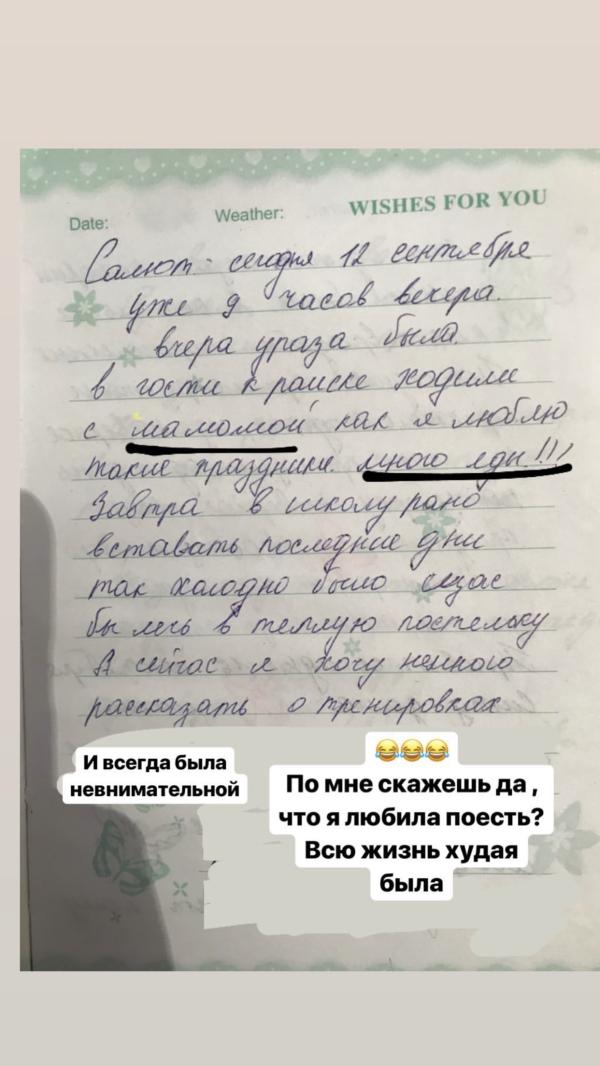 WISHES FOR YOU
Date: Weather:
Салют - сегодня 12 сентября
уже 9 часов вечера.
вчера ураза была.
в гости к раиске ходили
с мамомой как я люблю
такие праздники. много еды!!!
Завтра в школу рано
вставать последние дни
так холодно было сечас
бы лечь в теплую постельку
А сейчас я хочу немного
рассказать о тренировках
И всегда была
невнимательной
😂😂😂
По мне скажешь да ,
что я любила поесть?
Всю жизнь худая
была